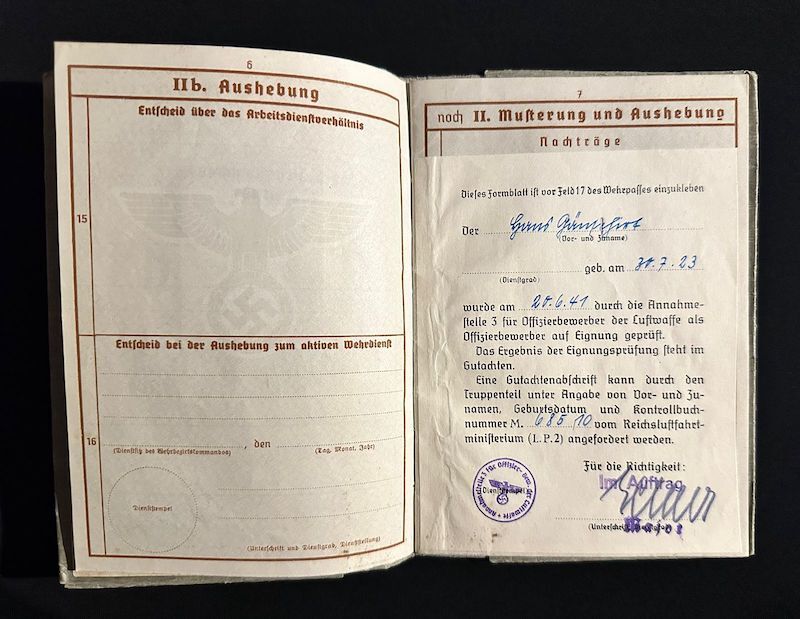 6
IIb. Aushebung
Entscheid über das Arbeitsdienstverhältnis
15
Entscheid bei der Aushebung zum aktiven Wehrdienst
16
, den
(Dienstsitz des Wehrbezirkskommandos)
(Tag, Monat, Jahr)
Dienststempel
(Unterschrift und Dienstgrad, Dienststellung)
7
noch II. Musterung und Aushebung
Nachträge
Dieses Formblatt ist vor Feld 17 des Wehrpasses einzukleben
Der Hans
(Vor- und Zuname)
geb. am 30.7.23
(Dienstgrad)
wurde am 20.6.41 durch die Annahme-
stelle 3 für Offizierbewerber der Luftwaffe als
Offizierbewerber auf Eignung geprüft.
Das Ergebnis der Eignungsprüfung steht im
Gutachten.
Eine Gutachtenabschrift kann durch den
Truppenteil unter Angabe von Vor- und Zu-
namen, Geburtsdatum und Kontrollbuch-
nummer M. 685/10 vom Reichsluftfahrt-
ministerium (L.P.2) angefordert werden.
Für die Richtigkeit:
Im Auftrag
Dienststempel
Annahmestelle 3 für Offizier-bew. der Luftwaffe
Major